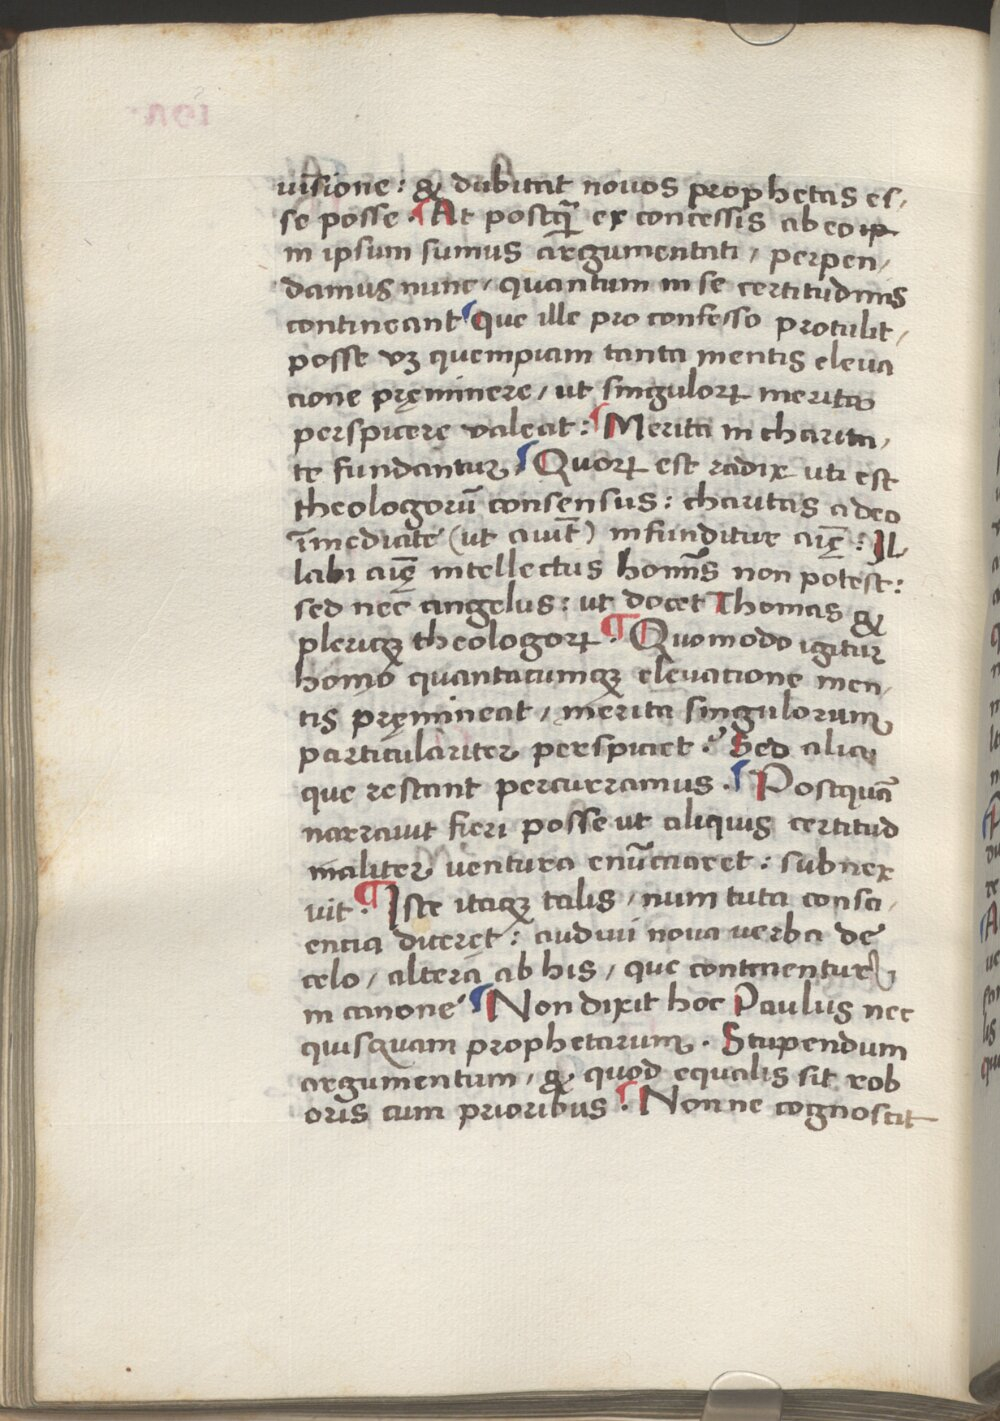 uisione: & dubitat nouos prophetas es-
se posse. At postq̃ ex concessis ab eo ip
m ipsum sumus argumentati, perpen-
damus nunc, quantum in se certitudinis
contineant que ille pro confesso protulit,
posse vꝫ quempiam tanta mentis eleua
cione pręminere, ut singuloꝝ merita
perspicere valeat: Merita in charita-
te fundantur, Quoꝝ est radix uti est
theologorũ consensus: charitas a deo
ĩmediate (ut aiuũt) infunditur aĩę: Il
labi aĩę intellectus homĩs non potest:
sed nec angelus: ut docet Thomas &
pleriqꝫ theologoꝝ. Quomodo igitur
homo quantacumqꝫ eleuatione men-
tis pręmineat, merita singulorum
particulariter perspiciet? Sed aliа
que restant percurramus. Postquã
narrauit fieri posse ut aliquis certitud
inaliter uentura enũciaret: subnex
uit. Iste itaqꝫ talis, num tuta consci-
encia diceret: audiui noua uerba de
celo, altera ab his, que continentur
in canone Non dixit hoc Paulus nec
quisquam prophetarum. Stupendum
argumentum, & quod equalis sit rob
oris cum prioribus. Nonne cognoscit